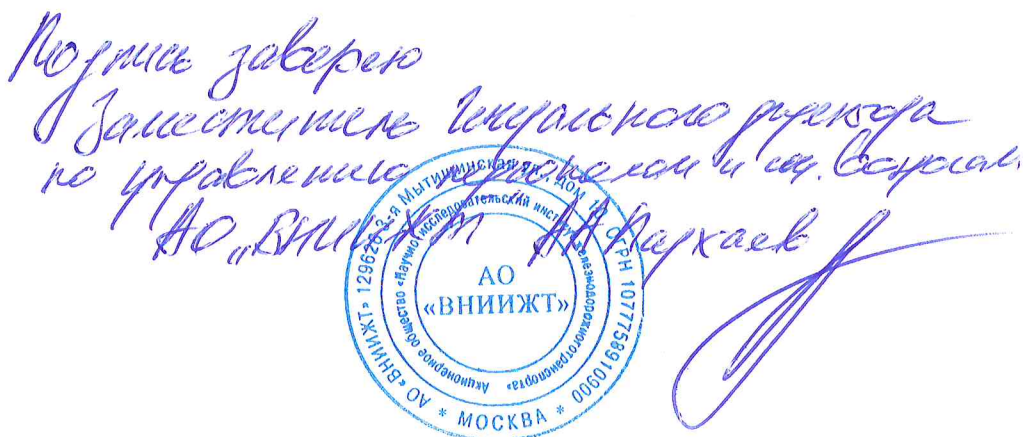 Подпись заверяю
Заместитель Генерального директора
по управлению персоналом и соц. вопросам
АО "ВНИИЖТ" АА Пархаев
АО «ВНИИЖТ» 129626 3-я Мытищинская ул., дом 10 ОГРН 1077758910900
* МОСКВА *
Акционерное общество «Научно-исследовательский институт железнодорожного транспорта»
АО
«ВНИИЖТ»